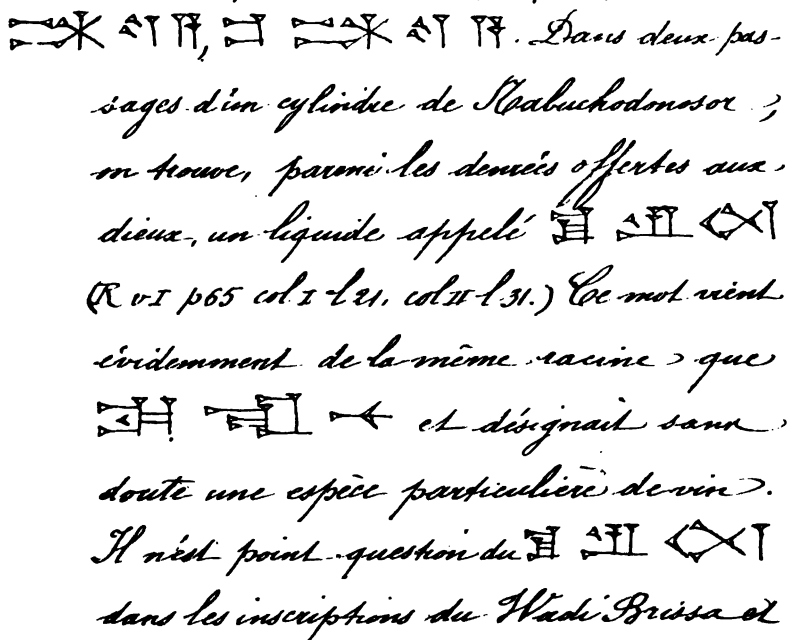 , . Dans deux pas-
sages d'un cylindre de Nabuchodonosor,
on trouve, parmi les denrées offertes aux
dieux, un liquide appelé
(R v I p 65 col I l 21, col II l 31.) Ce mot vient
évidemment de la même racine que
et désignait sans
doute une espèce particulière de vin.
Il n'est point question du
dans les inscriptions du Wadi Brissa et